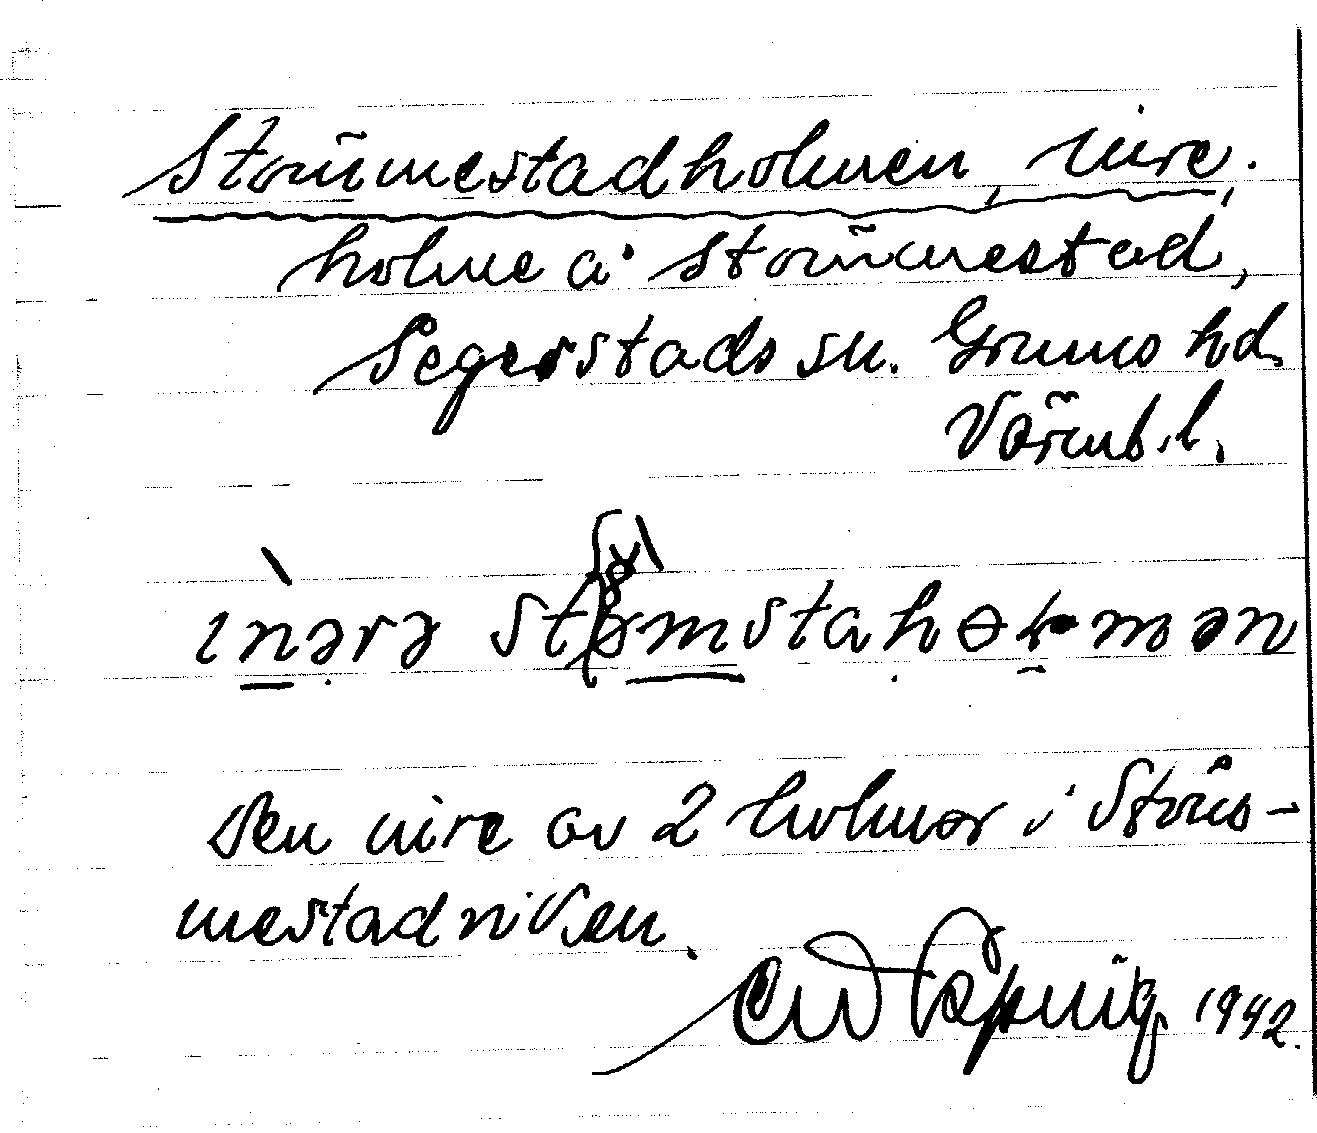 Stömmestadholmen, inre.
holme å Stömmestad,
Segerstads sn. Grums hd.
Värml. l.
den inre av 2 holmar i Stöm-
mestadviken.
1942.